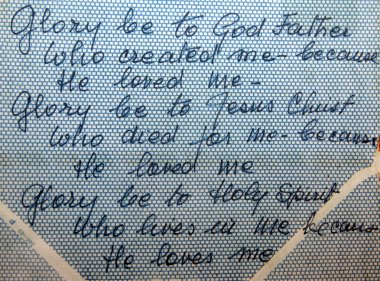 Glory be to God Father
Who created me - because
He loved me -
Glory be to Jesus Christ
Who died for me - because
He loved me
Glory be to Holy Spirit
Who lives in me becaus
He loves me